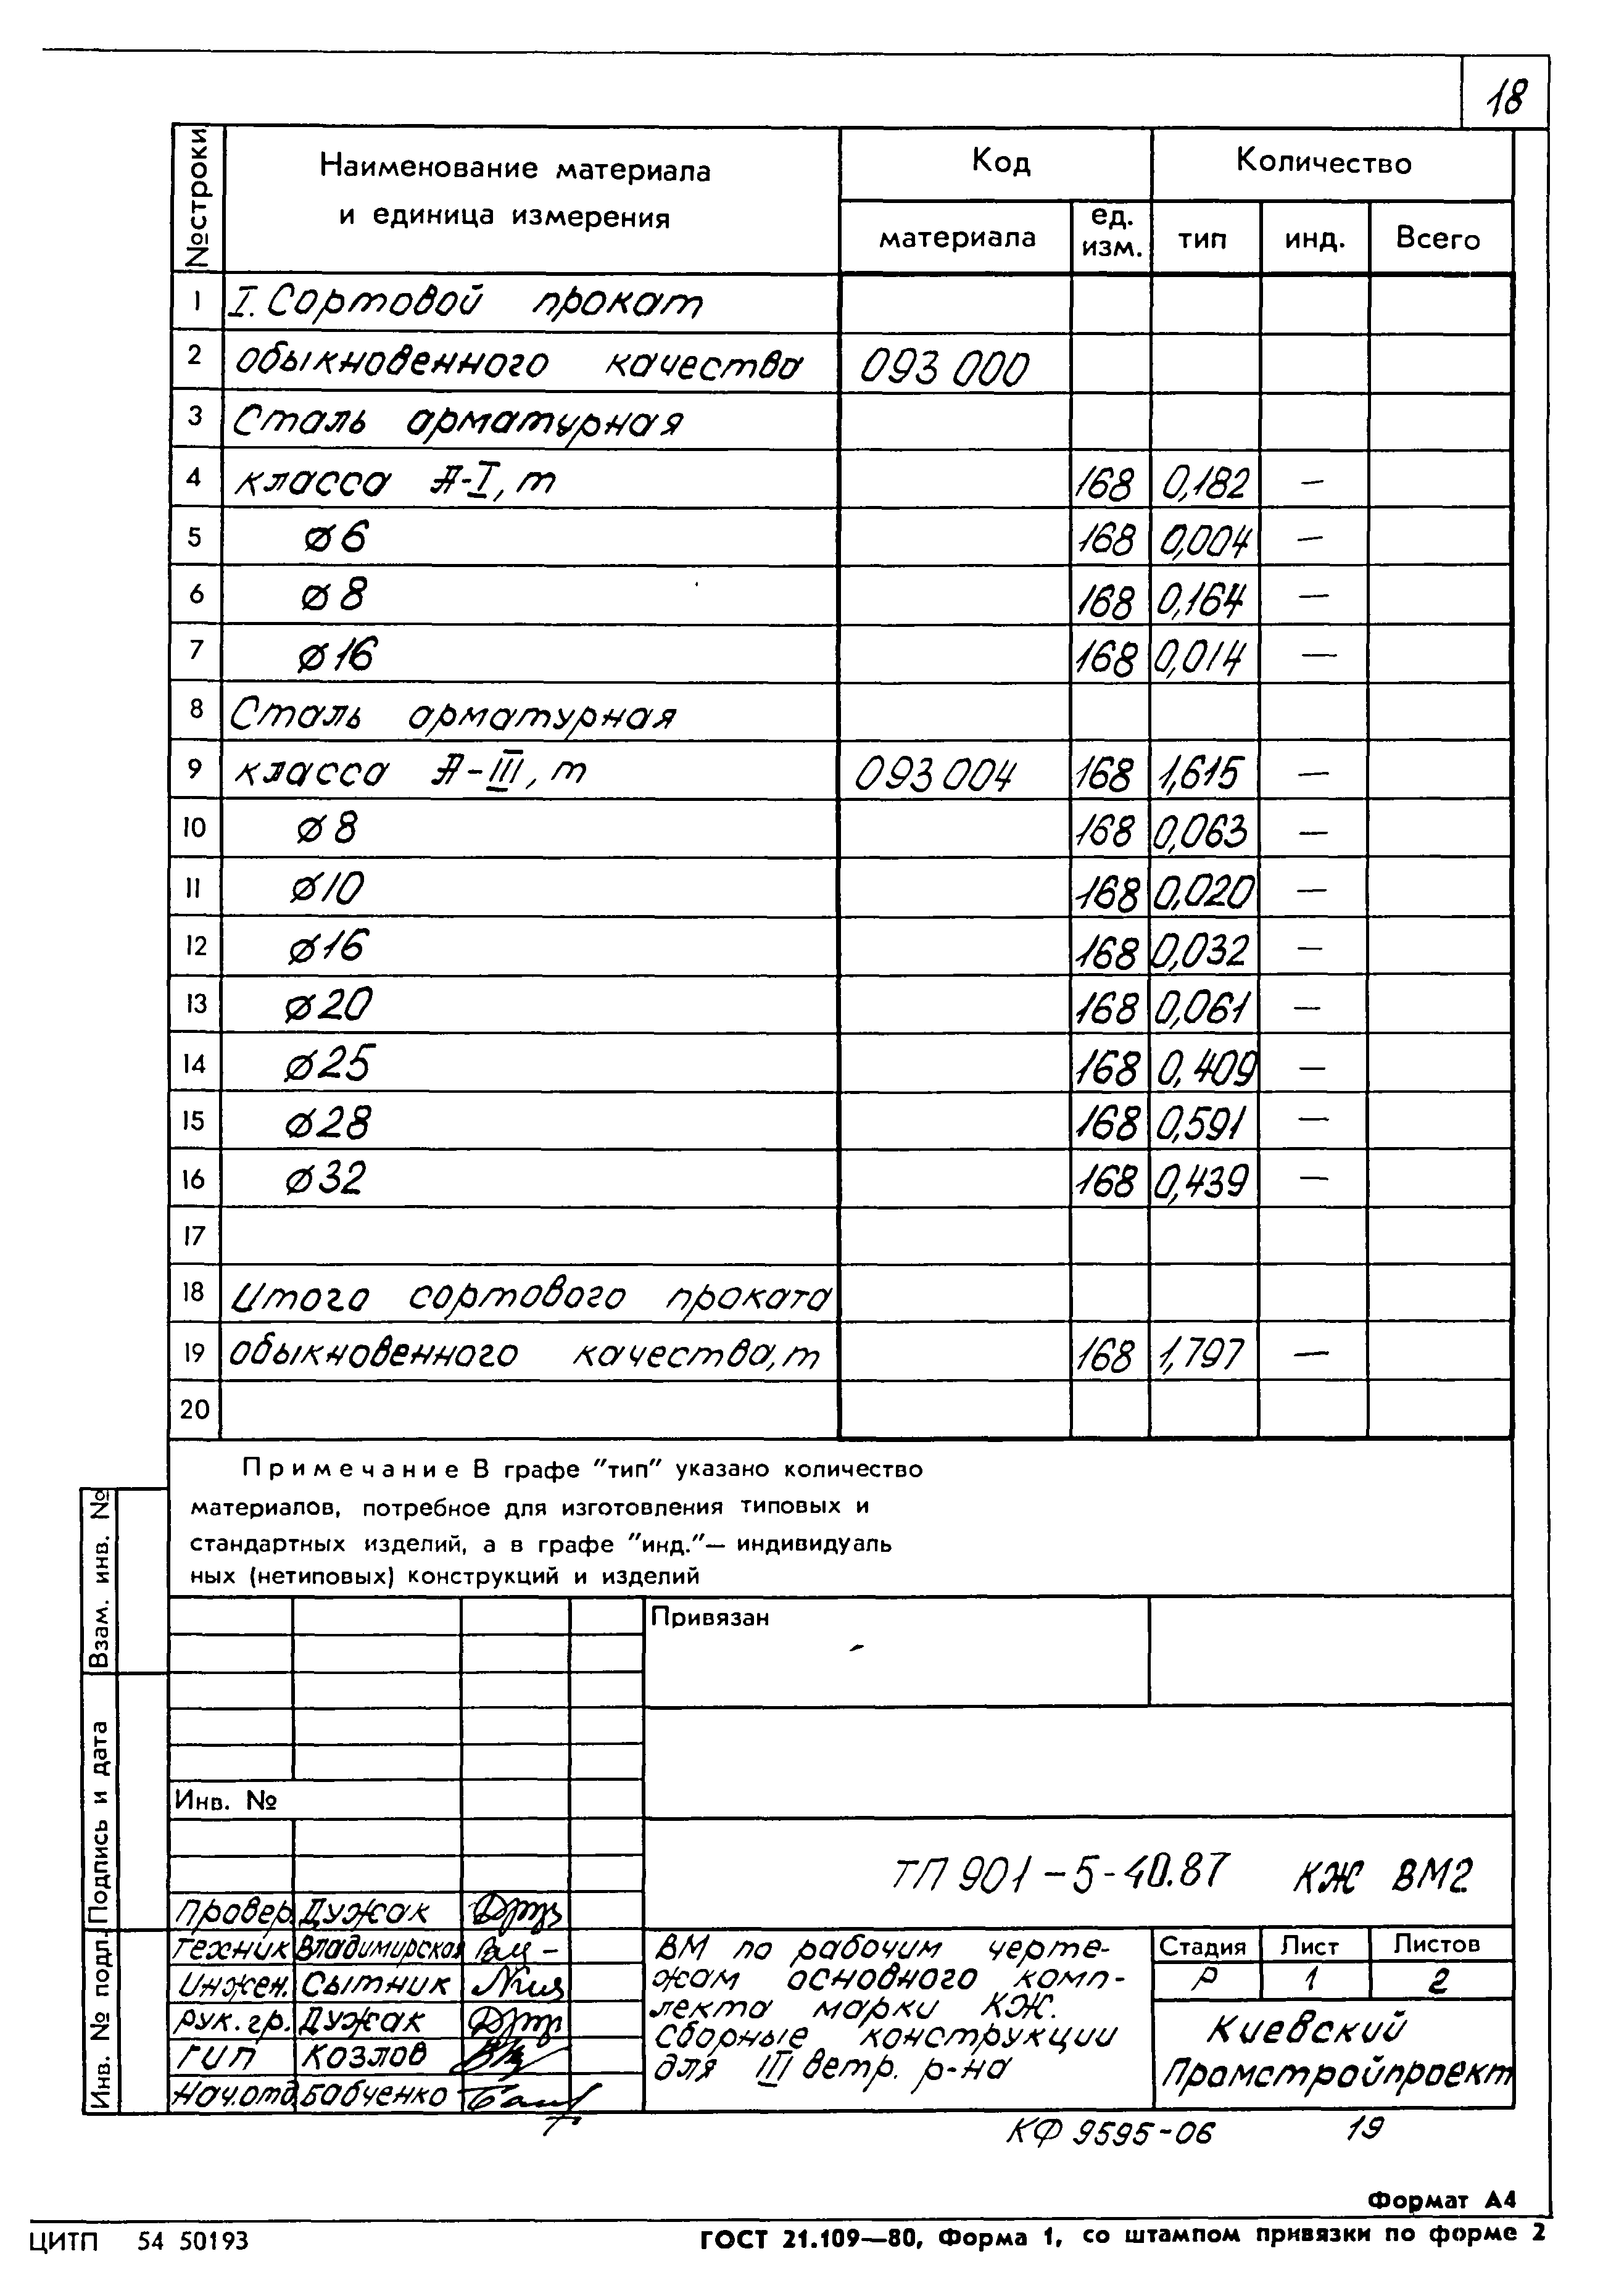 18
№ строки
Наименование материала
и единица измерения
Код
Количество
материала
ед.
изм.
тип
инд.
Всего
1 I. Сортовой прокат
2 обыкновенного качества 093 000
3 Сталь арматурная
4 класса А-I, т 168 0,182 —
5 ⌀6 168 0,004 —
6 ⌀8 168 0,164 —
7 ⌀16 168 0,014 —
8 Сталь арматурная
9 класса А-III, т 093 004 168 1,615 —
10 ⌀8 168 0,063 —
11 ⌀10 168 0,020 —
12 ⌀16 168 0,032 —
13 ⌀20 168 0,061 —
14 ⌀25 168 0,409 —
15 ⌀28 168 0,591 —
16 ⌀32 168 0,439 —
17
18 Итого сортового проката
19 обыкновенного качества, т 168 1,797 —
20
Примечание В графе "тип" указано количество
материалов, потребное для изготовления типовых и
стандартных изделий, а в графе "инд."— индивидуаль
ных (нетиповых) конструкций и изделий
Взам. инв. №
Подпись и дата
Инв. № подл.
Привязан
Инв. №
ТП 901-5-40.87 КЖ ВМ2
Провер. Дужак
Техник Владимирская
Инжен. Сытник
Рук. гр. Дужак
ГИП Козлов
Нач.отд. Бабченко
ВМ по рабочим черте-
жам основного комп-
лекта марки КЖ.
Сборные конструкции
для III ветр. р-на
Стадия Лист Листов
Р 1 2
Киевский
Промстройпроект
КФ 9595-06 19
Формат А4
ЦИТП 54 50193
ГОСТ 21.109—80, Форма 1, со штампом привязки по форме 2